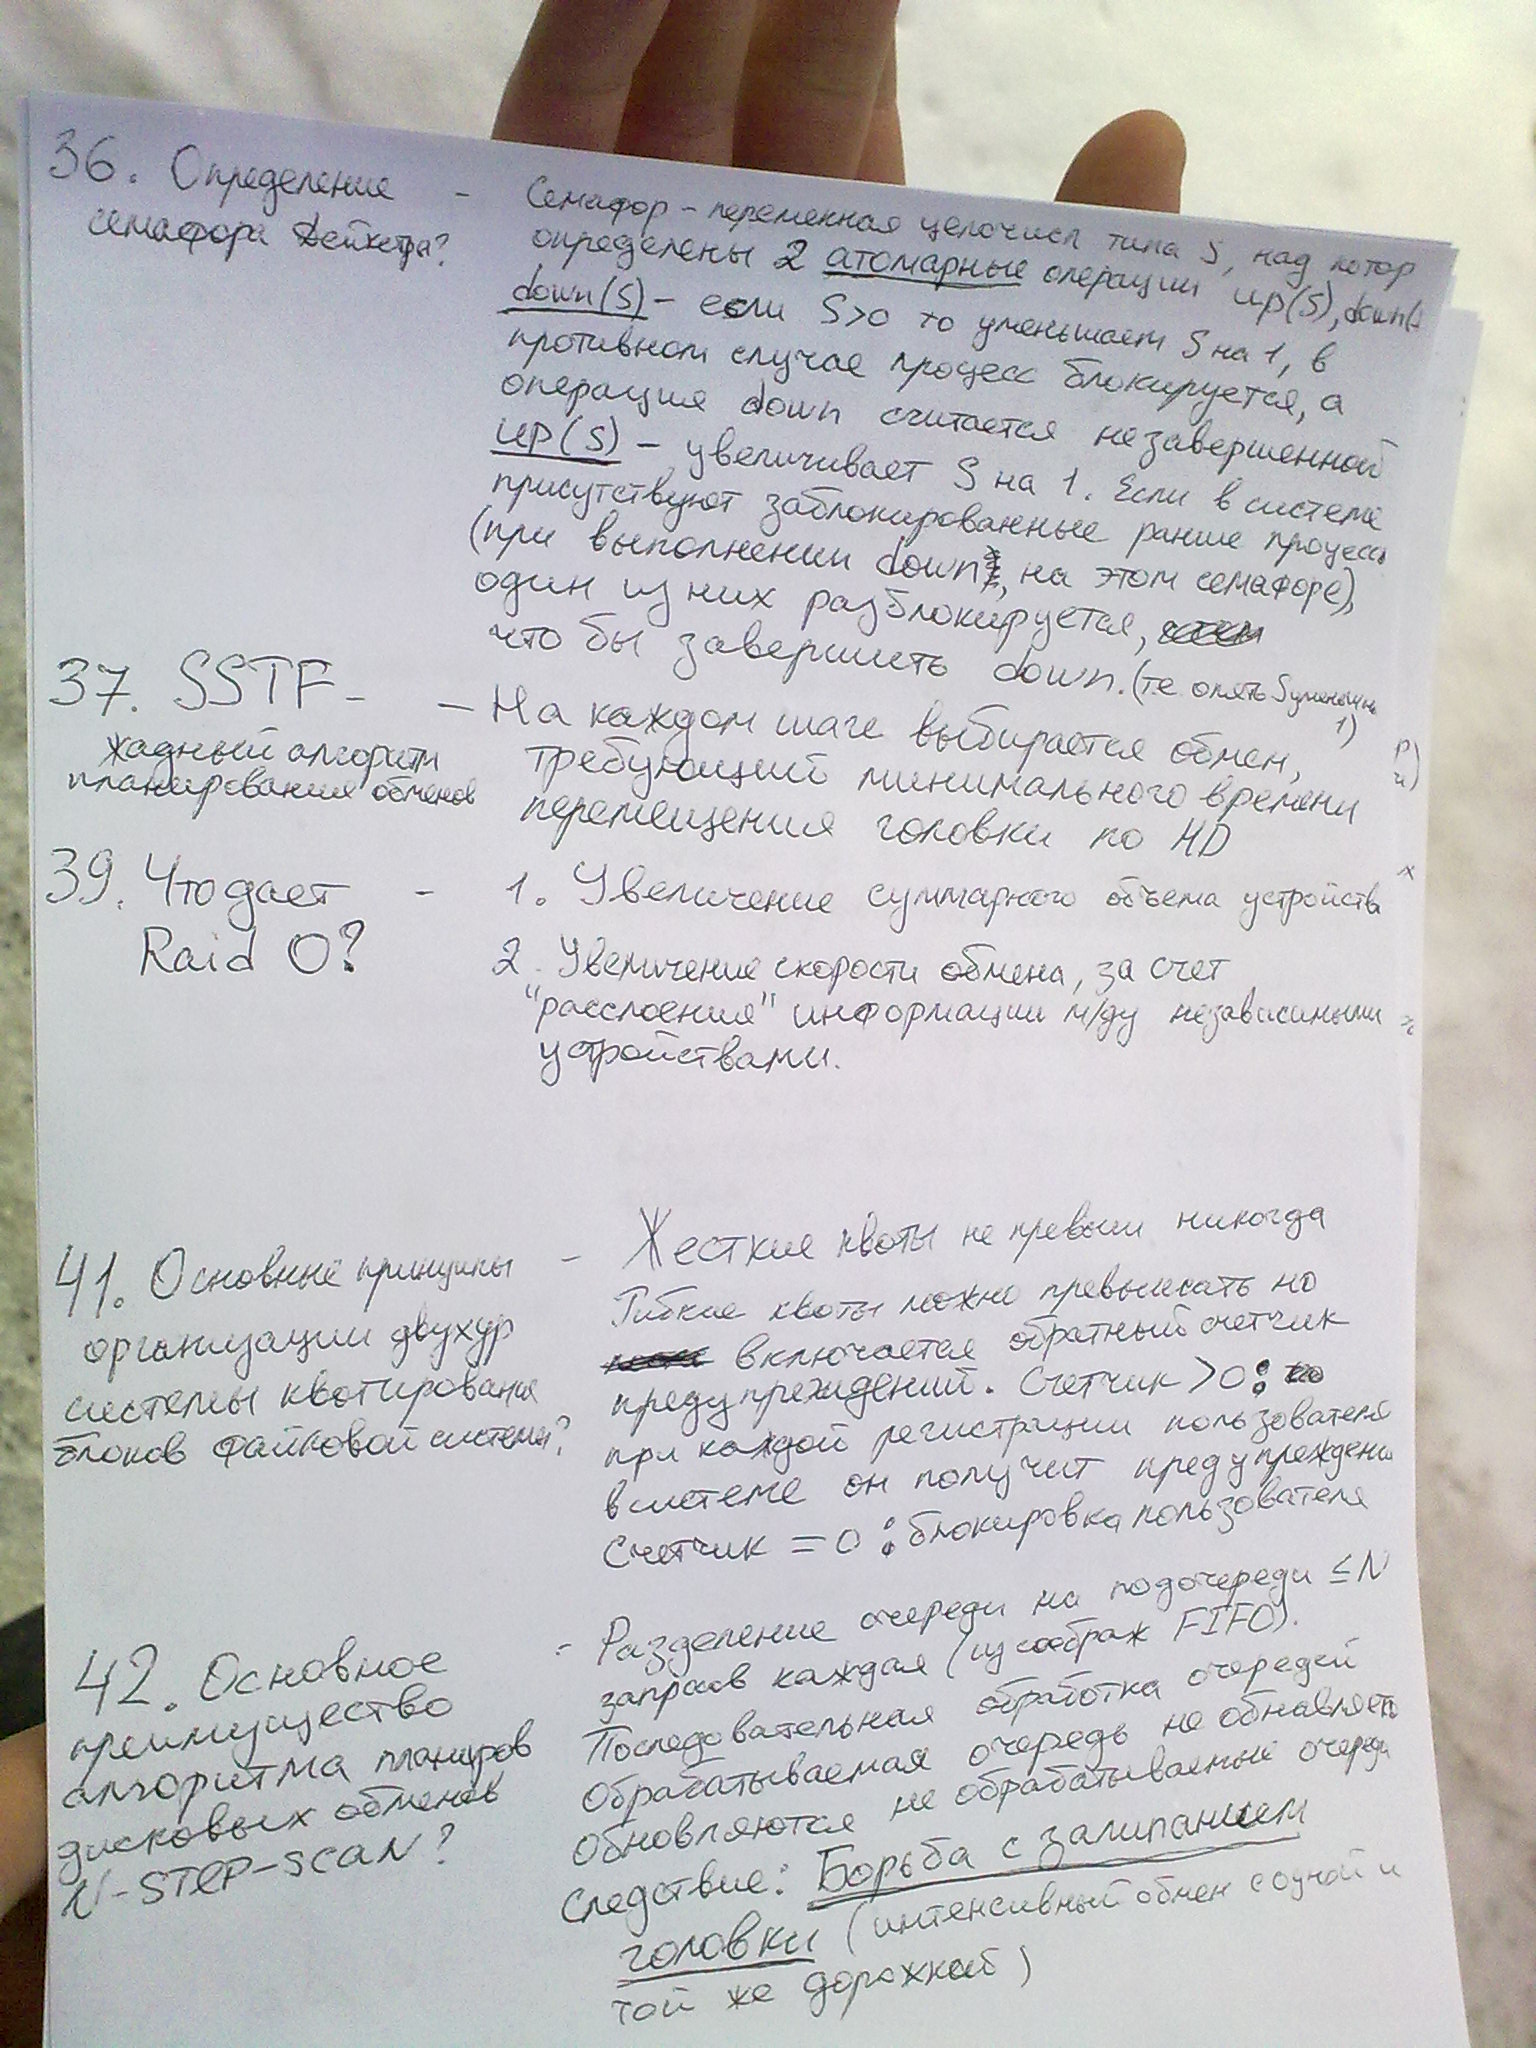 36. Определение
семафора Дейкстра?
- Семафор - переменная целочисл типа S, над котор
определены 2 атомарные операции up(S), down(
down(S) - если S>0 то уменьшает S на 1, в
противном случае процесс блокируется, а
операция down считается незавершенной
up(S) - увеличивает S на 1. Если в системе
присутствуют заблокированные ранше процессы
(при выполнении down, на этом семафоре),
один из них разблокируется,
что бы завершить down. (те опять S уменьш на
1)
37. SSTF -
жадный алгоритм
планирования обменов
- На каждом шаге выбирается обмен,
требующий минимального времени
перемещения головки по HD
39. Что дает
Raid 0?
- 1. Увеличение суммарного объема устройств
2. Увеличение скорости обмена, за счет
"расслоения" информации м/ду независимыми
устройствами.
41. Основные принципы
организации двухур
системы квотирования
блоков файловой системы?
- Жесткие квоты не превыш никогда
Гибкие квоты можно превышать но
включается обратный счетчик
предупреждений. Счетчик >0:
при каждой регистрации пользователя
в системе он получит предупрежден
Счетчик = 0 : блокировка пользователя
42. Основное
преимущество
алгоритма планиров
дисковых обменов
N-STEP-SCAN?
- Разделение очереди на подочереди ≤ N
запросов каждая (из соображ FIFO).
Последовательная обработка очередей
Обрабатываемая очередь не обновляеть
Обновляются не обрабатываемые очереди
Следствие: Борьба с залипанием
головки (интенсивный обмен с одной и
той же дорожкой)